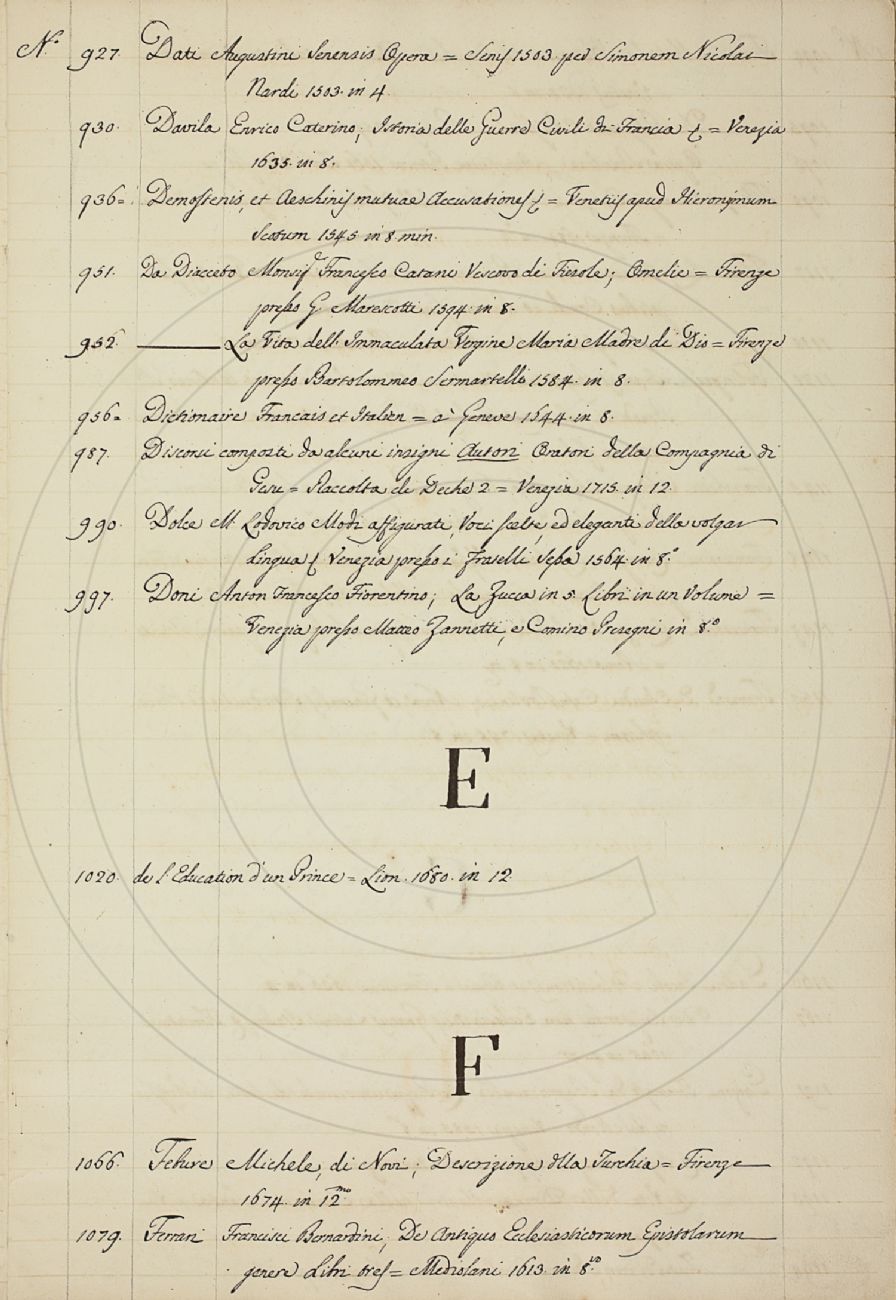 N.º 927. Dati Augustini Senensis Opera = Senis 1503 per Simonem Nicolai
Nardi 1503. in 4
930. Davila Enrico Caterino; Istoria delle Guerre Civili di Francia = Venezia
1635. in 8.
936= Demostenis, et Aeschinis mutuae Accusationes = Venetiis apud Hieronymum
Scotum 1545 in 8 min.
951. Da Diacceto Monsig.r Francesco Catani Vescovo di Fiesole; Omelie = Firenze
presso G. Marescotti 1594. in 8.
952. ——— La Vita dell' Immaculata Vergine Maria Madre di Dio = Firenze
presso Bartolommeo Sermartelli 1584. in 8.
956= Dictionaire Francais et Italien = a Geneve 1644. in 8.
987. Discorsi composti da alcuni insigni Autori Oratori della Compagnia di
Gesu = Raccolta di Deche 2 = Venezia 1715. in 12.
990. Dolce M. Lodovico Modi affigurati, Voci scelte, ed eleganti della volgar
Lingua Venezia presso i Fratelli Sessa 1564. in 8.º
997. Doni Anton Francesco Fiorentino; La Zucca in 5. Libri in un Volume =
Venezia presso Matteo Zannetti, e Comino Presegni in 8.º
E
1020. de l'Education d'un Prince = Lion. 1680. in 12
F
1066. Febure Michele, di Novi; Descrizione dlla Turchia = Firenze
1674. in 12mo
1079. Ferrari Francisci Bernardini, De Antiquo Ecclesiasticorum Epistolarum
genere Libri tres = Mediolani 1613. in 8.vo